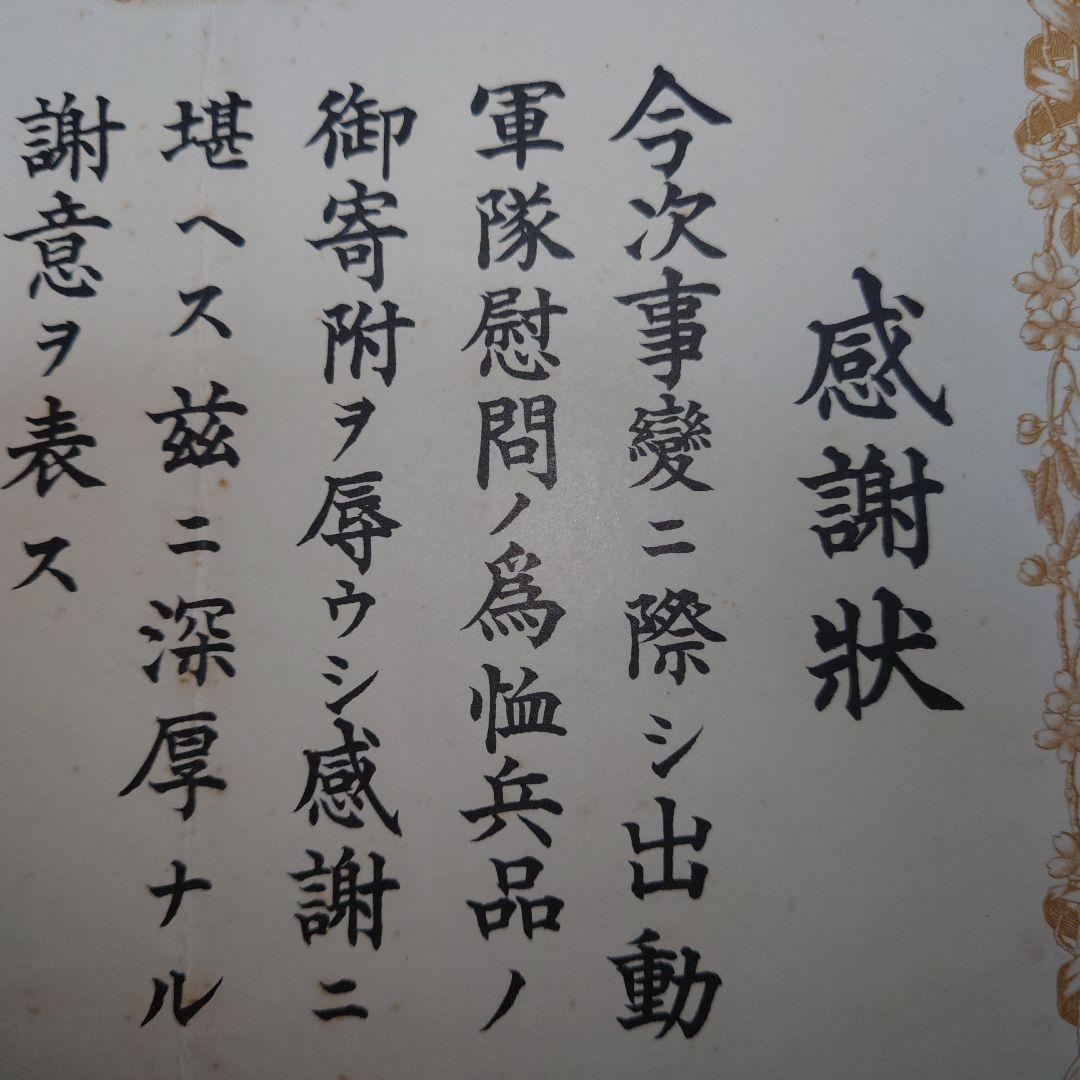 感謝狀
今次事變ニ際シ出動
軍隊慰問ノ爲恤兵品ノ
御寄附ヲ辱ウシ感謝ニ
堪ヘス茲ニ深厚ナル
謝意ヲ表ス